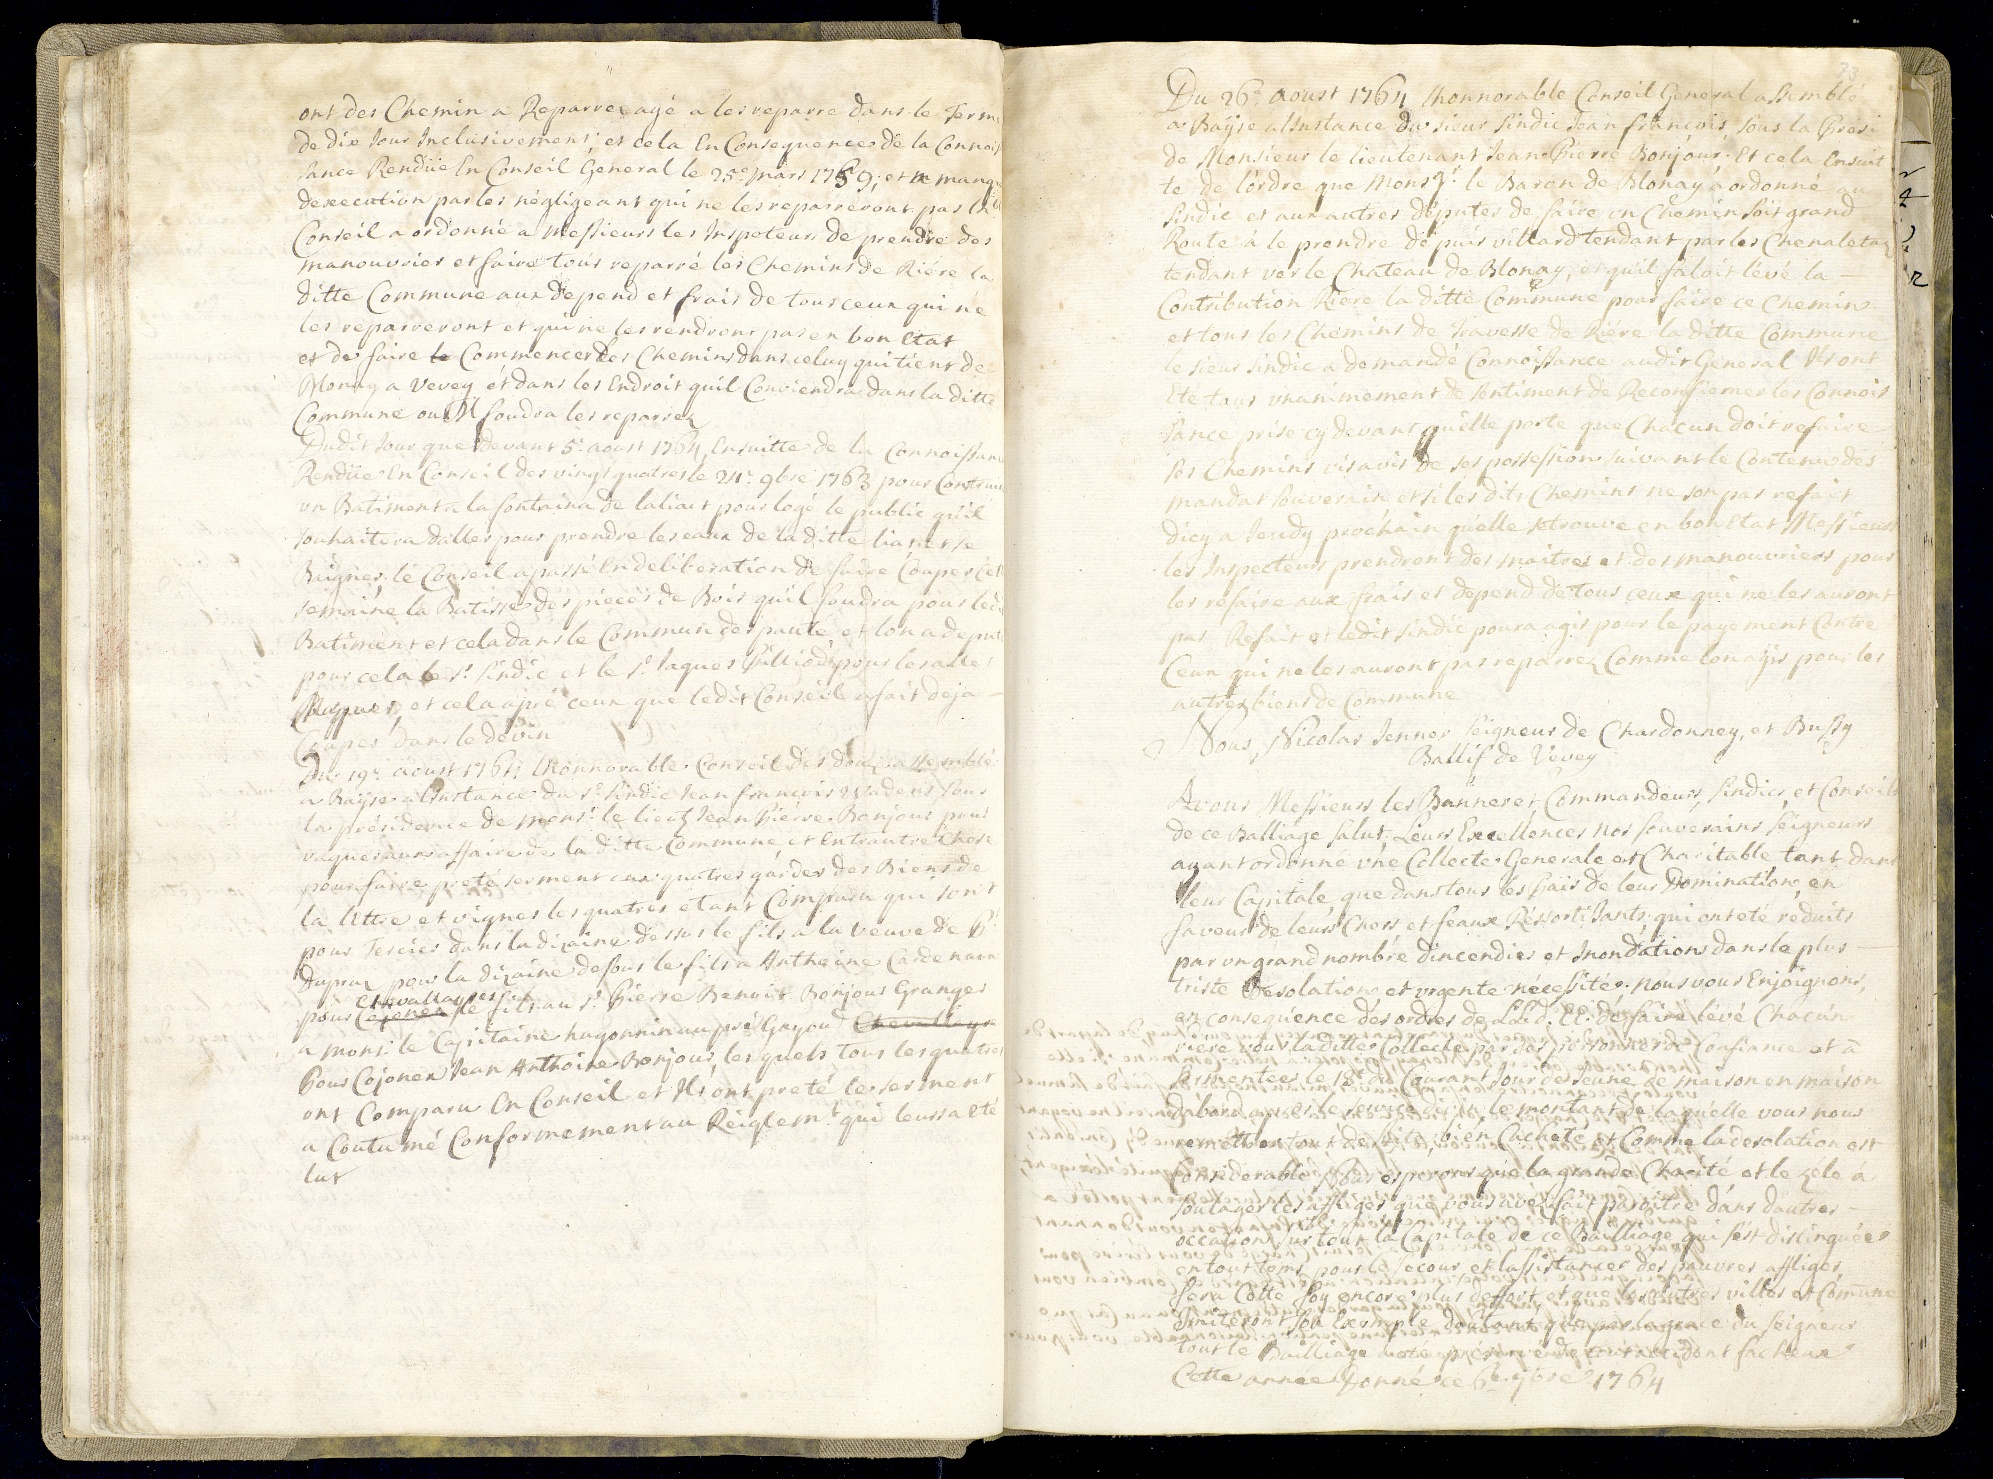 ont des Chemin a Reparrer ayé a les reparre dans le Terme
de dix Jour Inclusivement, et cela En Consequence de la Connois
sance Rendüe En Conseil General le 25e mars 1759; et a manque
dexecution par les négligeant qui ne les reparreront pas
Conseil a ordonné a Messieurs les Inspoteurs de prendre des
manouvrier et faire tous reparré les Chemins de Riére la
ditte Commune aux depend et frais de tous ceux qui ne
les reparreront et qui ne les rendront pas en bon Etat
et de faire le Commencer les Chemins dans celuy qui tient de
Blonay a Vevey et dans les Endroit quil Conviendra dans la ditte
Commune ou Il foudra les reparrer
Dudit Jour que devant 5e aoust 1764 Ensuitte de la Connoissance
Rendüe En Conseil des vingt quatres le 21e 9bre 1763 pour Construire
un Batiment a la fontaina de laliait pour logé le public quil
souhaitera daller pour prendre les eaux de la ditte liaz et se
Baigner, le Conseil a passé En deliberation de faire Couper Cette
semaine la Batisse des pieces de Bois quil foudra pour ledit
Batiment et cela dans le Commun des pauté et lon a deputé
pour cela le Sr. Sindic et le Sr. Jaques Pilliod pour les aller
Marquer, et cela apré ceux que ledit Conseil a fait deja
Couper dans le devin
Du 19e aoust 1764 lhonnorable Conseil des douze assemblé
a Bayse a linstance du Sr. Sindic Jean francois Wadens, sous
la présidence de Monsr. le lieut Jean Pierre Bonjour pour
vaquer aux affaire de la ditte Commune et Entrautre Chose
pour faire preté serment aux quatres gardes des Biens de
la lettre et vignes les quatres etant Comparu qui sont
pour Tercier dans la dizaine dessus le fils a la Veuve de P.
Dupraz, pour la dizaine desous le fils a Antheine Cardenava
Chevalleyres
pour Cojonex le fils au Sr. Pierre Benoit Bonjour Granger
a Monsr. le Capitaine hugonnin au pré Gayoud Chevalleyre
Pour Cojonex Jean Anthoine Bonjour, les quels tous les quatres
ont Comparu En Conseil et Ils ont preté le serment
a Coutumé Conformement au Reiglemt. qui leurs a Eté
lut
Du 26e aoust 1764 lhonnorable Conseil General assemblé
a Bayse a linstance du sieur Sindic Jean francois, sous la Presi
de Monsieur le lieutenant Jean Pierre Bonjour. Et cela Ensuit
te de lordre que Monsgr. le Baron de Blonay a ordonné au
Sindic et aux autres députer de faire un Chemin soit grand
Route à le prendre depuis villard tendant par les Chenaletaz
tendant ver le Chateau de Blonay, et quil faloit levé la
Contribution Riere la ditte Commune pour faire ce Chemin
et tous les Chemins de Travesse de Riére la ditte Commune
le sieur Sindic a demandé Connoissance audit General Ils ont
Eté tous unanimement de sentiment de Reconfiermer les Connois
sance prise cy devant quelle porte que Chacun doit refaire
ses Chemins vis avis de ses possession suivant le Contenu des
mandat souverain et si les dits Chemins ne son pas refait
dicy a Jeudy prochain quelle se trouve en bon Etat Messieurs
les Inspecteurs prendront des maitres et des manouvriers pour
les refaire aux frais et depend de tous ceux qui ne les auront
pas Refait et ledit Sindic poura agir pour le payement Contre
Ceux qui ne les auront pas reparrez Comme lon agis pour les
autres biens de Commune
Nous, Nicolas Jenner Seigneur de Chardonney, et Bussy
Ballif de Vevey
A vous Messieurs les Banneret Commandeurs, Sindics, et Conseils
de ce Balliage salut, Leurs Excellences Nos souverains seigneurs
ayant ordonné une Collecte Generale et Charitable tant dans
leur Capitale que dans tous les païs de leur Domination, en
faveur de leurs Chers et feaux Réssortissants qui ont eté réduits
par un grand nombre dincendies et Inondations dans le plus
triste Desolation et urgente nécessité. nous vous Enjoignons,
en consequence des ordres de L.L.d. EE. de faire lévé Chacun
riere vous la ditte Collecte par des personnes de Confiance et a
sermentées le 18e du Courant Jour de Jeune de maison en maison
dabord apres le service divin le montant de laquelle vous nous
remettrer tout de suite bien Cacheté et Comme la desolation est
Considerable Nous esperons que la grande Charité et le zéle à
soulager les affliger que vous avez fait paroitre dans dautres
occations, sur tout la Capitale de ce Bailliage qui sest distinguée
en tout tems pour le secour et lassistances des pauvres affliger
sera Cette foy encore plus deffort et que les autres villes et Commune
Imiteront son Exemple dautant que par la grace du Seigneur
tout le Bailliage a eté preservé de tout accident facheux
Cette année Donné ce 6e 7bre 1764